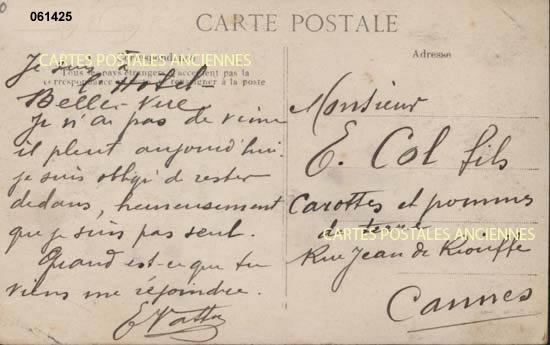 061425
CARTE POSTALE
Correspondance
Tous les pays étrangers n'acceptent pas la
correspondance au recto se renseigner à la poste
Adresse
CARTES POSTALES ANCIENNES
Je suis à
l'Hotel
Belle-Vue
Je n'ai pas de veine
il pleut aujourd'hui.
je suis obligé de rester
dedans, heureusement
que je suis pas seul.
Quand est-ce que tu
viens me rejoindre.
Monsieur
E. Col fils
Carottes et pommes
de terre
CARTES POSTALES ANCIENNES
Rue Jean de Riouffe
Cannes